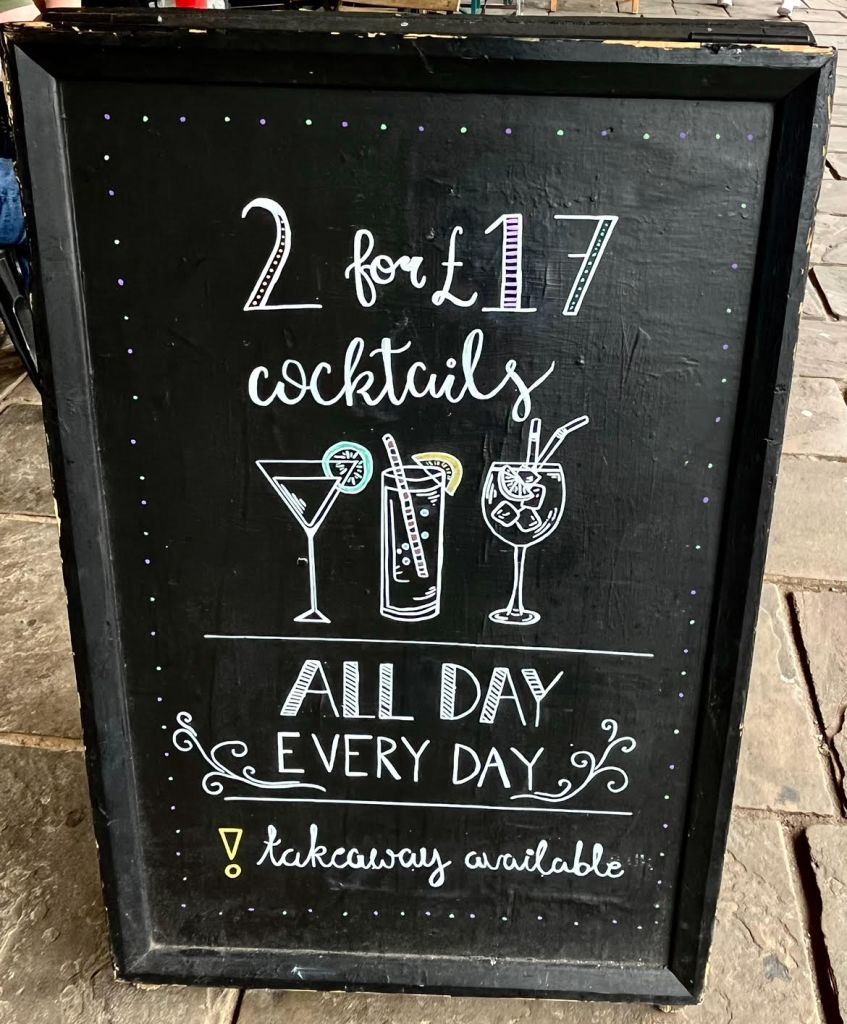 2 for £17
cocktails
ALL DAY
EVERY DAY
! takeaway available